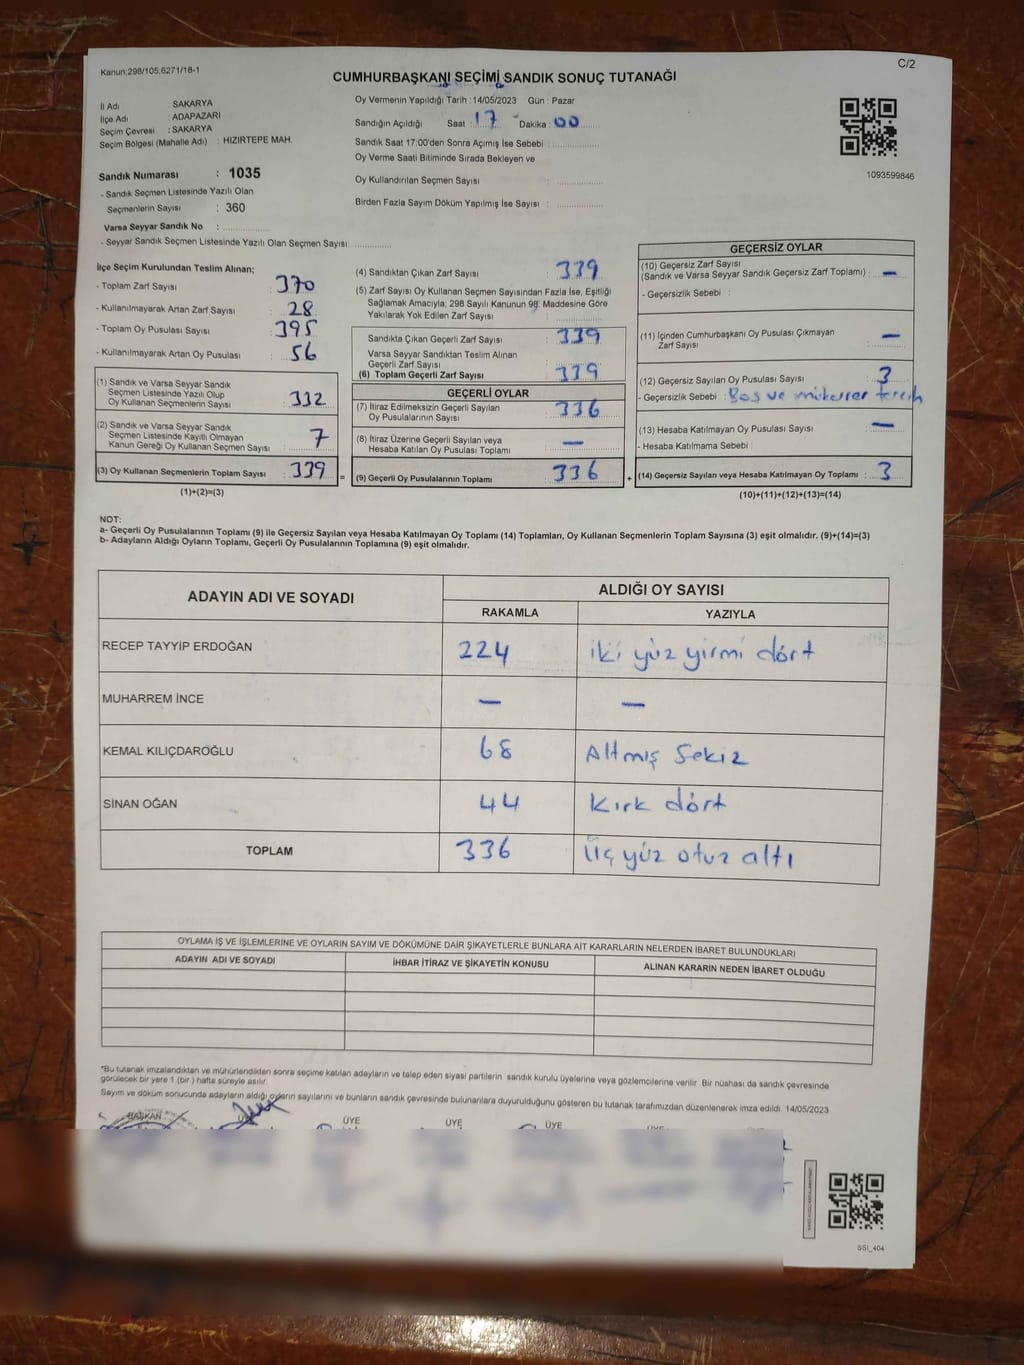 Kanun;298/105;6271/18-1
C/2
CUMHURBAŞKANI SEÇİMİ SANDIK SONUÇ TUTANAĞI
İl Adı : SAKARYA
İlçe Adı : ADAPAZARI
Seçim Çevresi : SAKARYA
Seçim Bölgesi (Mahalle Adı) : HIZIRTEPE MAH.
Sandık Numarası : 1035
- Sandık Seçmen Listesinde Yazılı Olan
Seçmenlerin Sayısı : 360
Varsa Seyyar Sandık No :
- Seyyar Sandık Seçmen Listesinde Yazılı Olan Seçmen Sayısı:
Oy Vermenin Yapıldığı Tarih : 14/05/2023 Gün : Pazar
Sandığın Açıldığı Saat : 17 Dakika : 00
Sandık Saat 17:00'den Sonra Açımış İse Sebebi :
Oy Verme Saati Bitiminde Sırada Bekleyen ve
Oy Kullandırılan Seçmen Sayısı :
Birden Fazla Sayım Döküm Yapılmış İse Sayısı :
1093599846
İlçe Seçim Kurulundan Teslim Alınan;
- Toplam Zarf Sayısı : 370
- Kullanılmayarak Artan Zarf Sayısı : 28
- Toplam Oy Pusulası Sayısı : 395
- Kullanılmayarak Artan Oy Pusulası : 56
(1) Sandık ve Varsa Seyyar Sandık
Seçmen Listesinde Yazılı Olup
Oy Kullanan Seçmenlerin Sayısı : 332
(2) Sandık ve Varsa Seyyar Sandık
Seçmen Listesinde Kayıtlı Olmayan
Kanun Gereği Oy Kullanan Seçmen Sayısı : 7
(3) Oy Kullanan Seçmenlerin Toplam Sayısı : 339 =
(1)+(2)=(3)
(4) Sandıktan Çıkan Zarf Sayısı : 339
(5) Zarf Sayısı Oy Kullanan Seçmen Sayısından Fazla İse, Eşitliği
Sağlamak Amacıyla; 298 Sayılı Kanunun 98. Maddesine Göre
Yakılarak Yok Edilen Zarf Sayısı :
Sandıkta Çıkan Geçerli Zarf Sayısı : 339
Varsa Seyyar Sandıktan Teslim Alınan
Geçerli Zarf Sayısı :
(6) Toplam Geçerli Zarf Sayısı : 339
GEÇERLİ OYLAR
(7) İtiraz Edilmeksizin Geçerli Sayılan
Oy Pusulalarının Sayısı : 336
(8) İtiraz Üzerine Geçerli Sayılan veya
Hesaba Katılan Oy Pusulası Toplamı : —
(9) Geçerli Oy Pusulalarının Toplamı : 336 +
GEÇERSİZ OYLAR
(10) Geçersiz Zarf Sayısı
(Sandık ve Varsa Seyyar Sandık Geçersiz Zarf Toplamı) : —
- Geçersizlik Sebebi :
(11) İçinden Cumhurbaşkanı Oy Pusulası Çıkmayan
Zarf Sayısı : —
(12) Geçersiz Sayılan Oy Pusulası Sayısı : 3
- Geçersizlik Sebebi : Boş ve mükerrer tercih
(13) Hesaba Katılmayan Oy Pusulası Sayısı : —
- Hesaba Katılmama Sebebi :
(14) Geçersiz Sayılan veya Hesaba Katılmayan Oy Toplamı : 3
(10)+(11)+(12)+(13)=(14)
NOT:
a- Geçerli Oy Pusulalarının Toplamı (9) ile Geçersiz Sayılan veya Hesaba Katılmayan Oy Toplamı (14) Toplamları, Oy Kullanan Seçmenlerin Toplam Sayısına (3) eşit olmalıdır. (9)+(14)=(3)
b- Adayların Aldığı Oyların Toplamı, Geçerli Oy Pusulalarının Toplamına (9) eşit olmalıdır.
ADAYIN ADI VE SOYADI ALDIĞI OY SAYISI
RAKAMLA YAZIYLA
RECEP TAYYİP ERDOĞAN 224 iki yüz yirmi dört
MUHARREM İNCE — —
KEMAL KILIÇDAROĞLU 68 Altmış Sekiz
SİNAN OĞAN 44 Kırk dört
TOPLAM 336 Üç yüz otuz altı
OYLAMA İŞ VE İŞLEMLERİNE VE OYLARIN SAYIM VE DÖKÜMÜNE DAİR ŞİKAYETLERLE BUNLARA AİT KARARLARIN NELERDEN İBARET BULUNDUKLARI
ADAYIN ADI VE SOYADI İHBAR İTİRAZ VE ŞİKAYETİN KONUSU ALINAN KARARIN NEDEN İBARET OLDUĞU
"Bu tutanak imzalandıktan ve mühürlendikten sonra seçime katılan adayların ve talep eden siyasi partilerin sandık kurulu üyelerine veya gözlemcilerine verilir. Bir nüshası da sandık çevresinde
görülecek bir yere 1 (bir ) hafta süreyle asılır.
Sayım ve döküm sonucunda adayların aldığı oyların sayılarını ve bunların sandık çevresinde bulunanlara duyurulduğunu gösteren bu tutanak tarafımızdan düzenlenerek imza edildi. 14/05/2023
BAŞKAN ÜYE ÜYE ÜYE
SSI_404